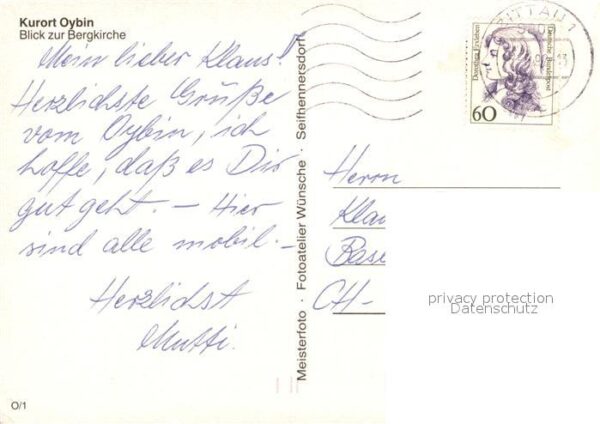 Kurort Oybin
Blick zur Bergkirche
Mein lieber Klaus!
Herzlichste Grüße
vom Oybin, ich
hoffe, daß es Dir
gut geht. – Hier
sind alle mobil. –
Herzlichst
Mutti.
O/1
Meisterfoto · Fotoatelier Wünsche · Seifhennersdorf
ZITTAU 1
Dorothea Erxleben
Deutsche Bundespost
60
Herrn
Klau
Base
CH-
privacy protection
Datenschutz